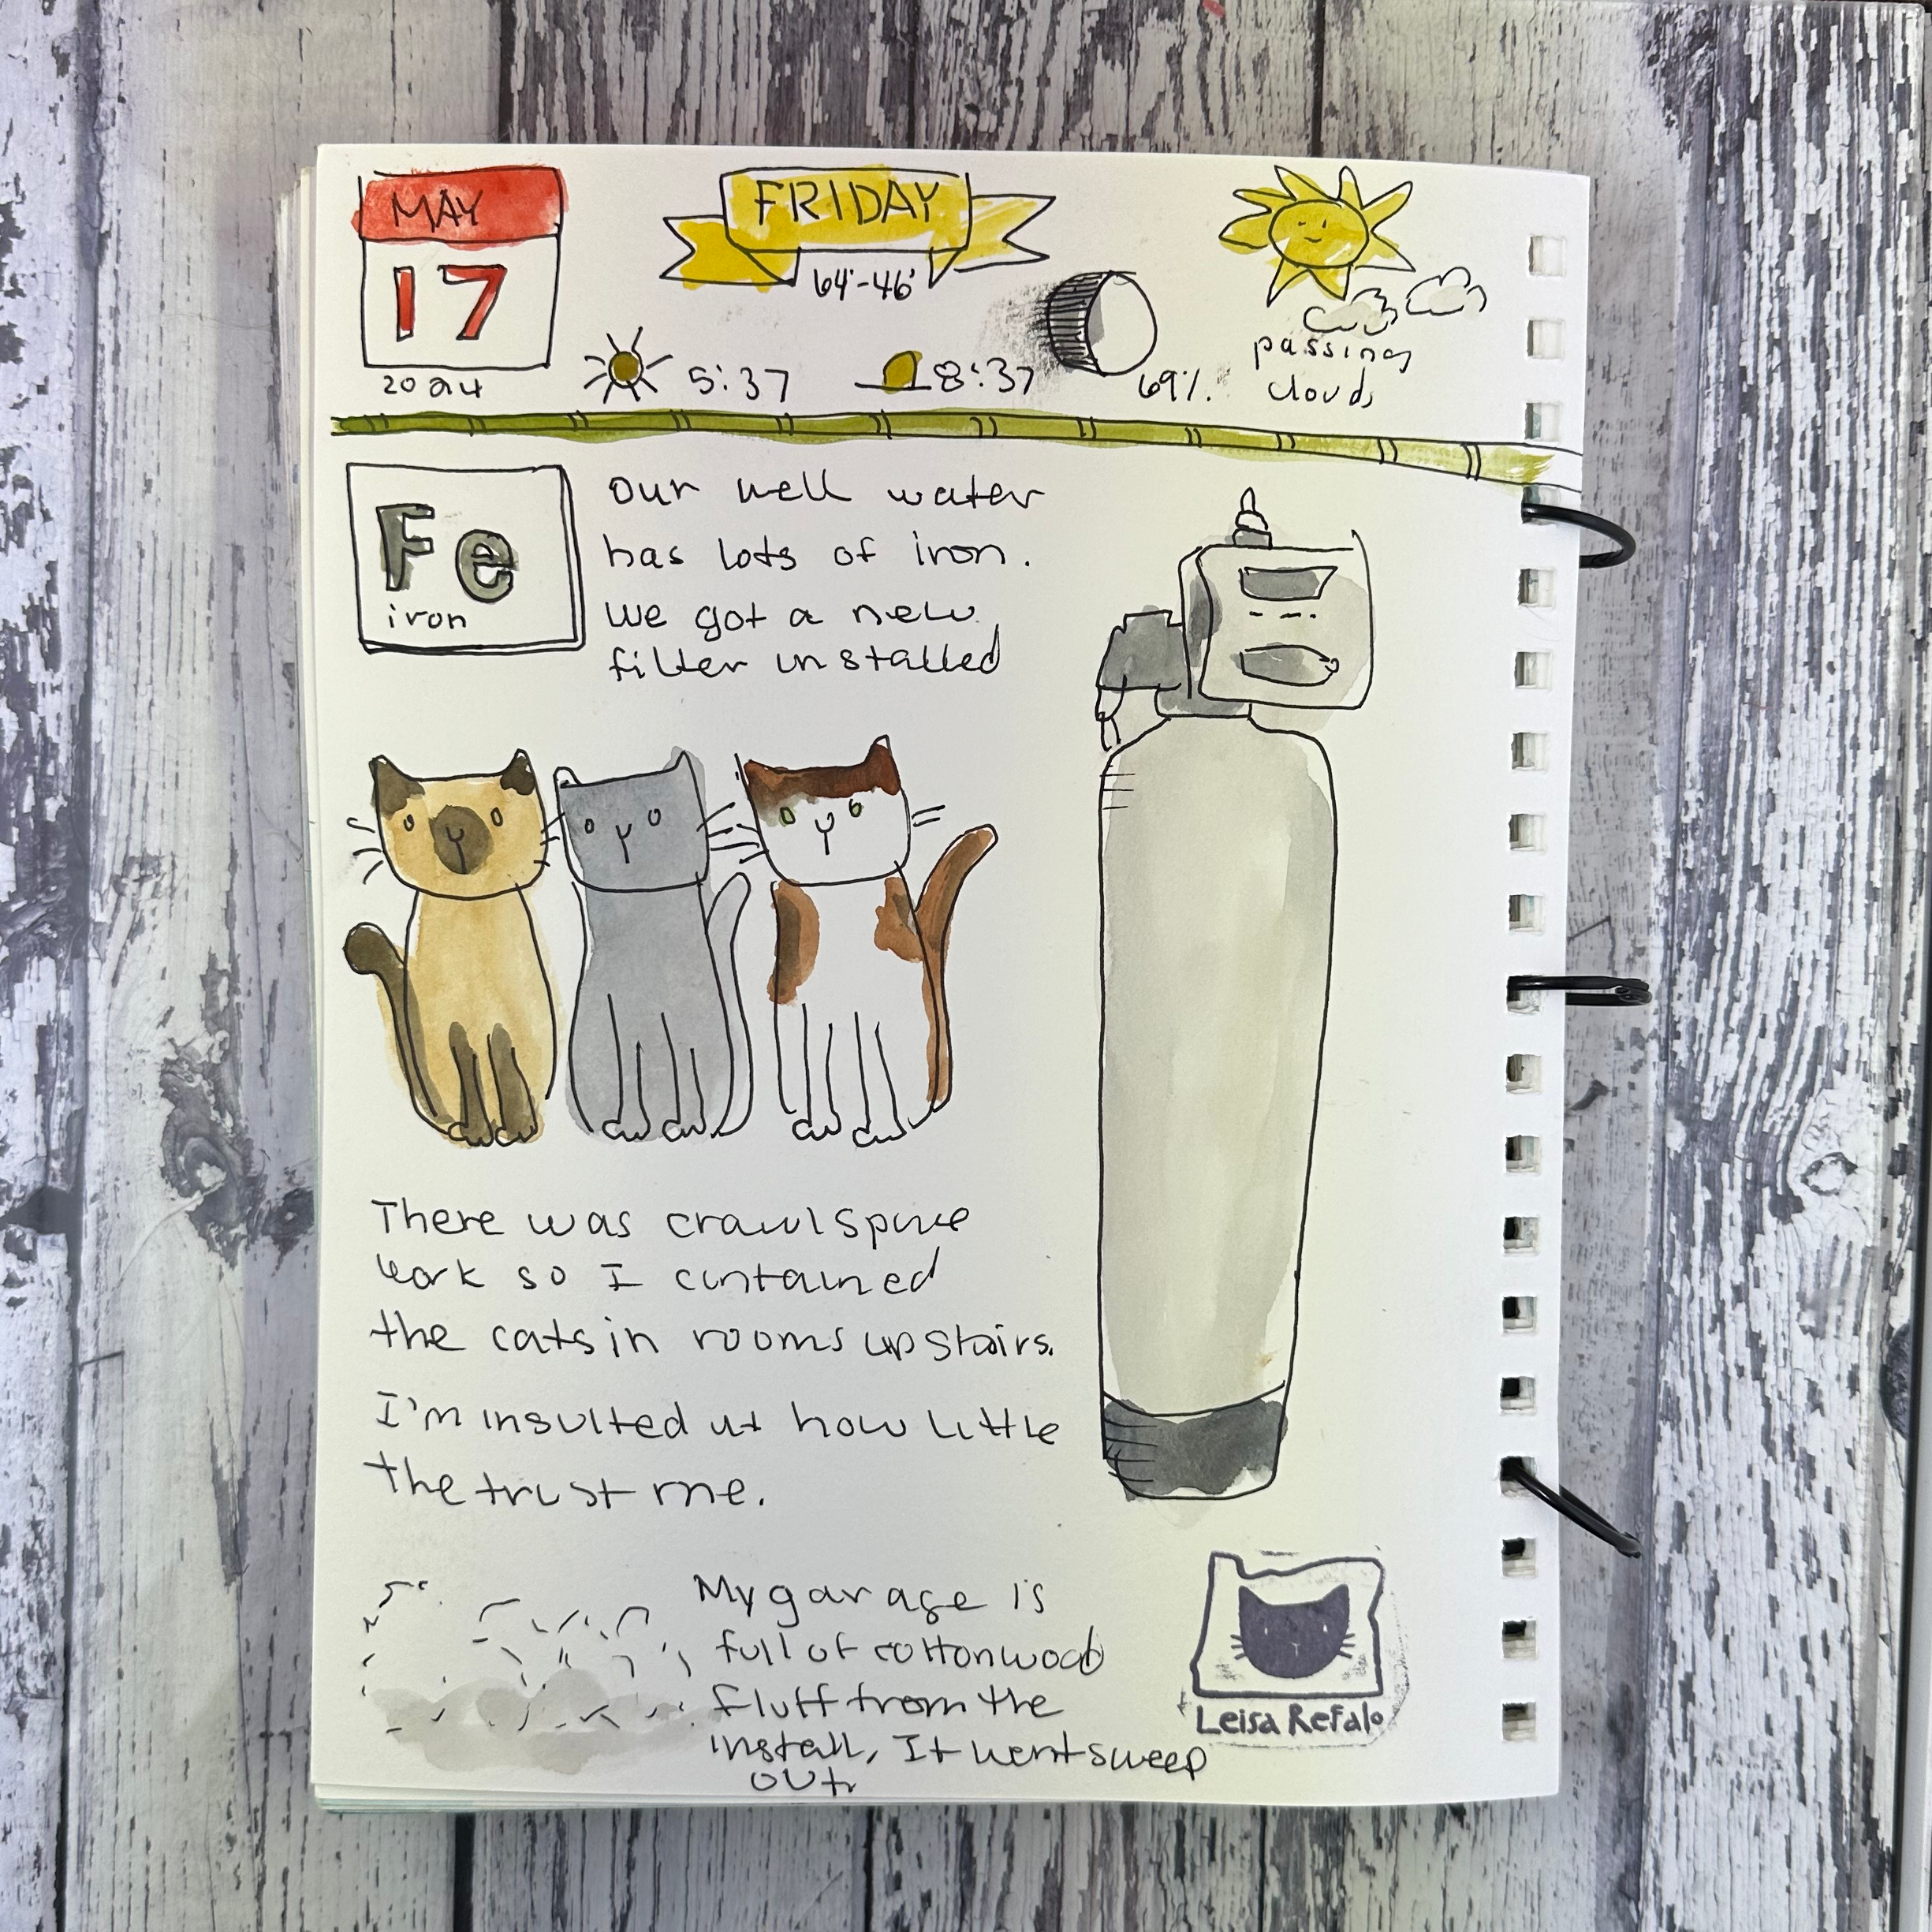 MAY
17
2024
FRIDAY
64°-46°
5:37
8:37
69%.
passing
clouds
Fe
iron
Our well water
has lots of iron.
we got a new
filter installed
There was crawlspace
work so I contained
the cats in rooms upstairs.
I'm insulted at how little
the trust me.
My garage is
full of cottonwood
fluff from the
install, It wont sweep
out.
Leisa Refalo